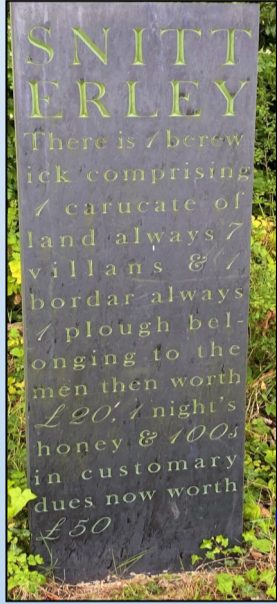 SNITT
ERLEY
There is 1 berew
ick comprising
1 carucate of
land always 7
villans & 1
bordar always
1 plough bel-
onging to the
men then worth
£20, 1 night's
honey & 100s
in customary
dues now worth
£50